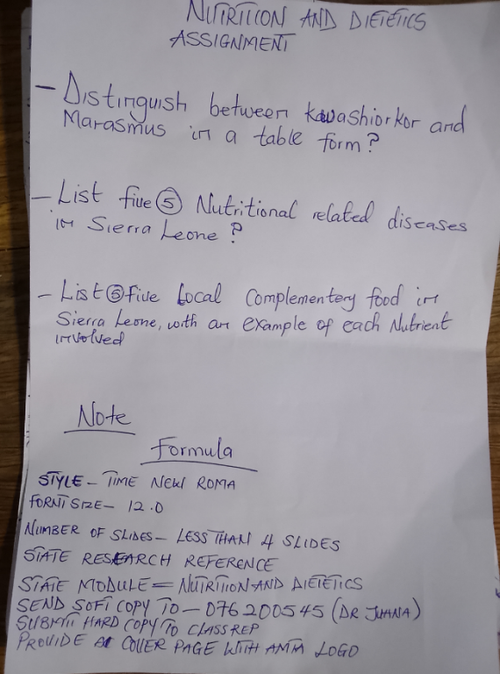 NUTRITION AND DIETETICS
ASSIGNMENT
- Distinguish between kwashiorkor and
Marasmus in a table form?
- List five ⑤ Nutritional related diseases
in Sierra Leone?
- List ⑤ five Local Complementary food in
Sierra Leone, with an example of each Nutrient
involved
Note
Formula
STYLE - TIME NEW ROMA
FORNT SIZE - 12.0
NUMBER OF SLIDES - LESS THAN 4 SLIDES
STATE RESEARCH REFERENCE
STATE MODULE = NUTRITION AND DIETETICS
SEND SOFT COPY TO - 076200545 (DR JUANA)
SUBMIT HARD COPY TO CLASS REP
PROVIDE A COVER PAGE WITH AMTA LOGO